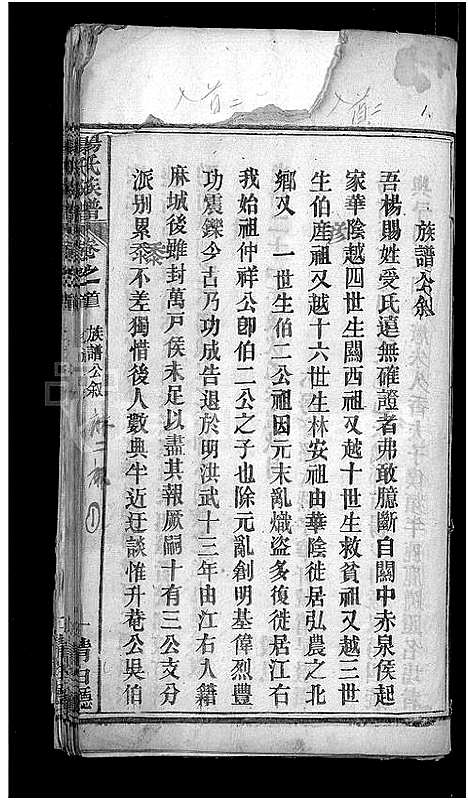 族譜公叙
吾楊賜姓受氏遠無確證者弗敢臆斷自關中赤泉侯起
家華陰越四世生關西祖又越十世生救貧祖又越三世
生伯產祖又越十六世生林安祖由華陰徙居弘農之北
鄉又一世生伯二公祖因元末亂熾盜多復徙居江右
我始祖仲祥公卽伯二公之子也除元亂創明基偉烈豐
功震鑠今古乃功成告退於明洪武十三年由江右入籍
麻城後雖封萬戶侯未足以盡其報厥嗣十有三公支分
派別累黍不差獨惜後人數典半近迂談惟升菴公吳伯
楊氏族譜 卷之首 族譜公叙 一 清白聽
入首二
入首二
1